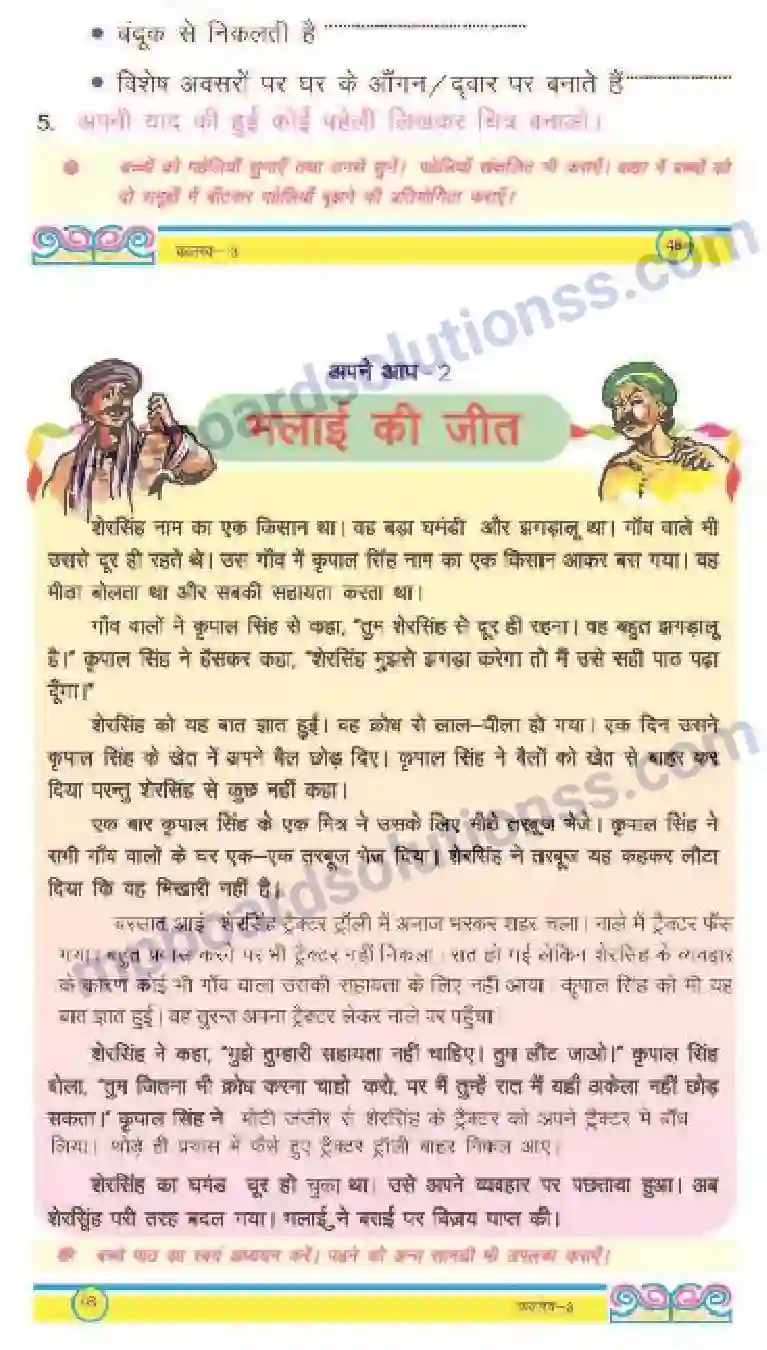 • बंदूक से निकलती है
• विशेष अवसरों पर घर के आँगन/द्वार पर बनाते हैं
5. अपनी याद की हुई कोई पहेली लिखकर चित्र बनाओ।
बच्चों को पहेलियाँ सुनाएँ तथा उनसे सुनें। पहेलियाँ संकलित भी कराएँ। कक्षा में बच्चों को
दो समूहों में बाँटकर पहेलियाँ बूझने की प्रतियोगिता कराएँ।
mpboardsolutionss.com
अपने आप-2
भलाई की जीत
शेरसिंह नाम का एक किसान था। वह बड़ा घमंडी और झगड़ालू था। गाँव वाले भी
उससे दूर ही रहते थे। उस गाँव में कृपाल सिंह नाम का एक किसान आकर बस गया। वह
मीठा बोलता था और सबकी सहायता करता था।
गाँव वालों ने कृपाल सिंह से कहा, "तुम शेरसिंह से दूर ही रहना। वह बहुत झगड़ालू
है।" कृपाल सिंह ने हँसकर कहा, "शेरसिंह मुझसे झगड़ा करेगा तो मैं उसे सही पाठ पढ़ा
दूँगा।"
शेरसिंह को यह बात ज्ञात हुई। वह क्रोध से लाल-पीला हो गया। एक दिन उसने
कृपाल सिंह के खेत में अपने बैल छोड़ दिए। कृपाल सिंह ने बैलों को खेत से बाहर कर
दिया परन्तु शेरसिंह से कुछ नहीं कहा।
एक बार कृपाल सिंह के एक मित्र ने उसके लिए मीठे तरबूज भेजे। कृपाल सिंह ने
सभी गाँव वालों के घर एक-एक तरबूज भेज दिया। शेरसिंह ने तरबूज यह कहकर लौटा
दिया कि वह भिखारी नहीं है।
बरसात आई शेरसिंह ट्रैक्टर ट्रॉली में अनाज भरकर शहर चला। नाले में ट्रैक्टर फँस
गया। बहुत प्रयास करने पर भी ट्रैक्टर नहीं निकला। रात हो गई लेकिन शेरसिंह के व्यवहार
के कारण कोई भी गाँव वाला उसकी सहायता के लिए नहीं आया। कृपाल सिंह को भी यह
बात ज्ञात हुई। वह तुरन्त अपना ट्रैक्टर लेकर नाले पर पहुँचा।
शेरसिंह ने कहा, "मुझे तुम्हारी सहायता नहीं चाहिए। तुम लौट जाओ।" कृपाल सिंह
बोला, "तुम जितना भी क्रोध करना चाहो करो, पर मैं तुम्हें रात में यहाँ अकेला नहीं छोड़
सकता।" कृपाल सिंह ने मोटी जंजीर से शेरसिंह के ट्रैक्टर को अपने ट्रैक्टर में बाँध
लिया। थोड़े ही प्रयास में फँसे हुए ट्रैक्टर ट्रॉली बाहर निकल आए।
शेरसिंह का घमंड चूर हो चुका था। उसे अपने व्यवहार पर पछतावा हुआ। अब
शेरसिंह पूरी तरह बदल गया। भलाई ने बुराई पर विजय प्राप्त की।
बच्चे पाठ का स्वयं अध्ययन करें। पढ़ने को अन्य सामग्री भी उपलब्ध कराएँ।
mpboardsolutionss.com